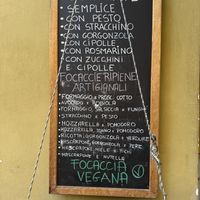 SEMPLICE
• CON PESTO
• CON STRACCHINO
• CON GORGONZOLA
• CON CIPOLLE
• CON ROSMARINO
• CON ZUCCHINI
E CIPOLLE
FOCACCIE RIPIENE
ARTIGIANALI
• FORMAGGIO E PROSC. COTTO
• AVOCADO E ROBIOLA
• FORMAGGIO, SALSICCIA E FUNGHI
• STRACCHINO E PESTO
• MOZZARELLA E POMODORO
• MOZZARELLA, TONNO E POMODORO
• RICOTTA, GORGONZOLA E VERDURE
• MASCARPONE, GORGONZOLA E PERE
• MASCARPONE, MIELE E NOCI
• MASCARPONE E NUTELLA
FOCACCIA
VEGANA